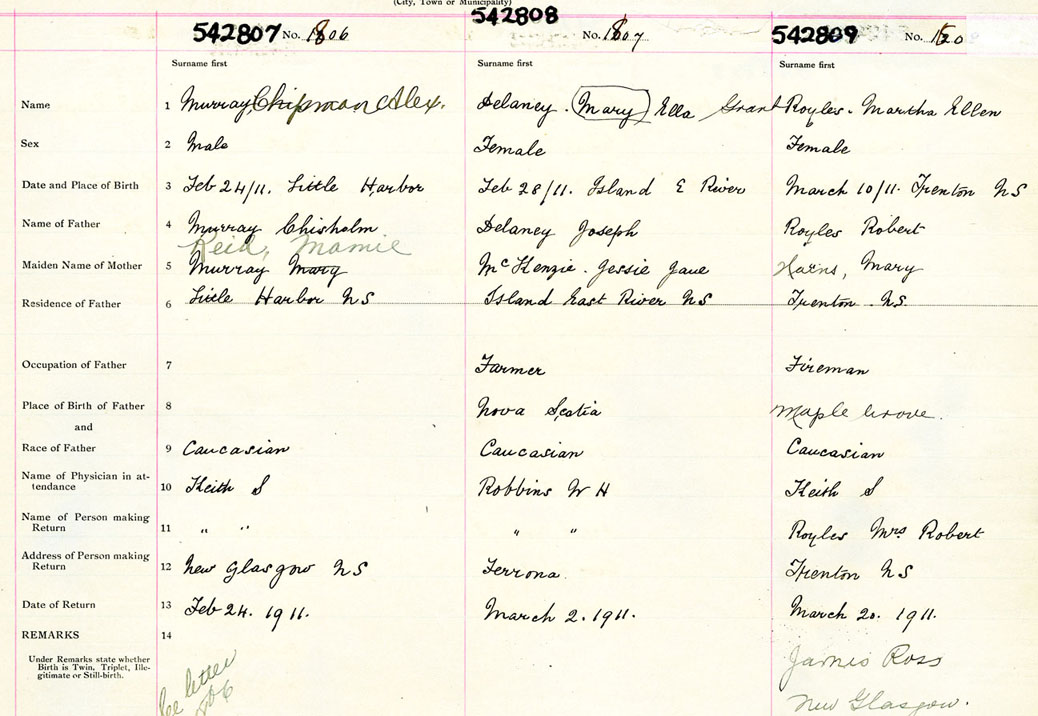 (City, Town or Municipality)
542807 No. 1806 542808 No. 1807 542809 No. 1520
Surname first Surname first Surname first
Name 1 Murray, Chipman Alex. Delaney. (Mary) Ella Grant Royles. Martha Ellen
Sex 2 Male Female Female
Date and Place of Birth 3 Feb 24/11. Little Harbor Feb 28/11. Island E River March 10/11. Trenton NS
Name of Father 4 Murray Chisholm Delaney Joseph Royles Robert
Reid, Mamie
Maiden Name of Mother 5 Murray Mary McKenzie. Jessie Jane Mary
Residence of Father 6 Little Harbor NS Island East River NS Trenton NS.
Occupation of Father 7 Farmer Fireman
Place of Birth of Father 8 Nova Scotia Maple Grove.
and
Race of Father 9 Caucasian Caucasian Caucasian
Name of Physician in at-
tendance 10 Keith S Robbins W H Keith S
Name of Person making
Return 11 " " " " Royles Mrs Robert
Address of Person making
Return 12 New Glasgow NS Ferrona. Trenton NS
Date of Return 13 Feb 24. 1911. March 2. 1911. March 20. 1911.
REMARKS 14
Under Remarks state whether
Birth is Twin, Triplet, Ille-
gitimate or Still-birth.
See letter
James Ross
New Glasgow.